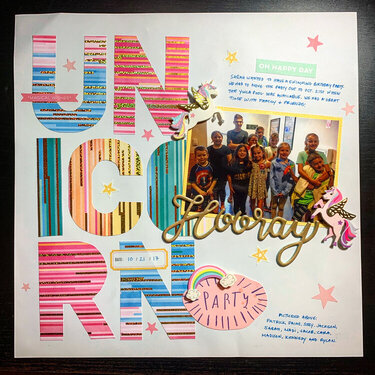 UN
ICO
RN
OH HAPPY DAY
WANTED TO HAVE A SWIMMING BIRTHDAY PARTY.
WE HAD TO MOVE THE PARTY OUT TO OCT. 21ST WHEN
THE YMCA POOL WAS AVAILABLE. WE HAD A GREAT
TIME WITH FAMILY & FRIENDS!
Hooray
DATE: 10 / 21 / 17
PARTY
PICTURED ABOVE:
PATRICK, JACKSON,
SARAH, JACOB, CARA,
MADISON, KENNEDY AND DYLAN.